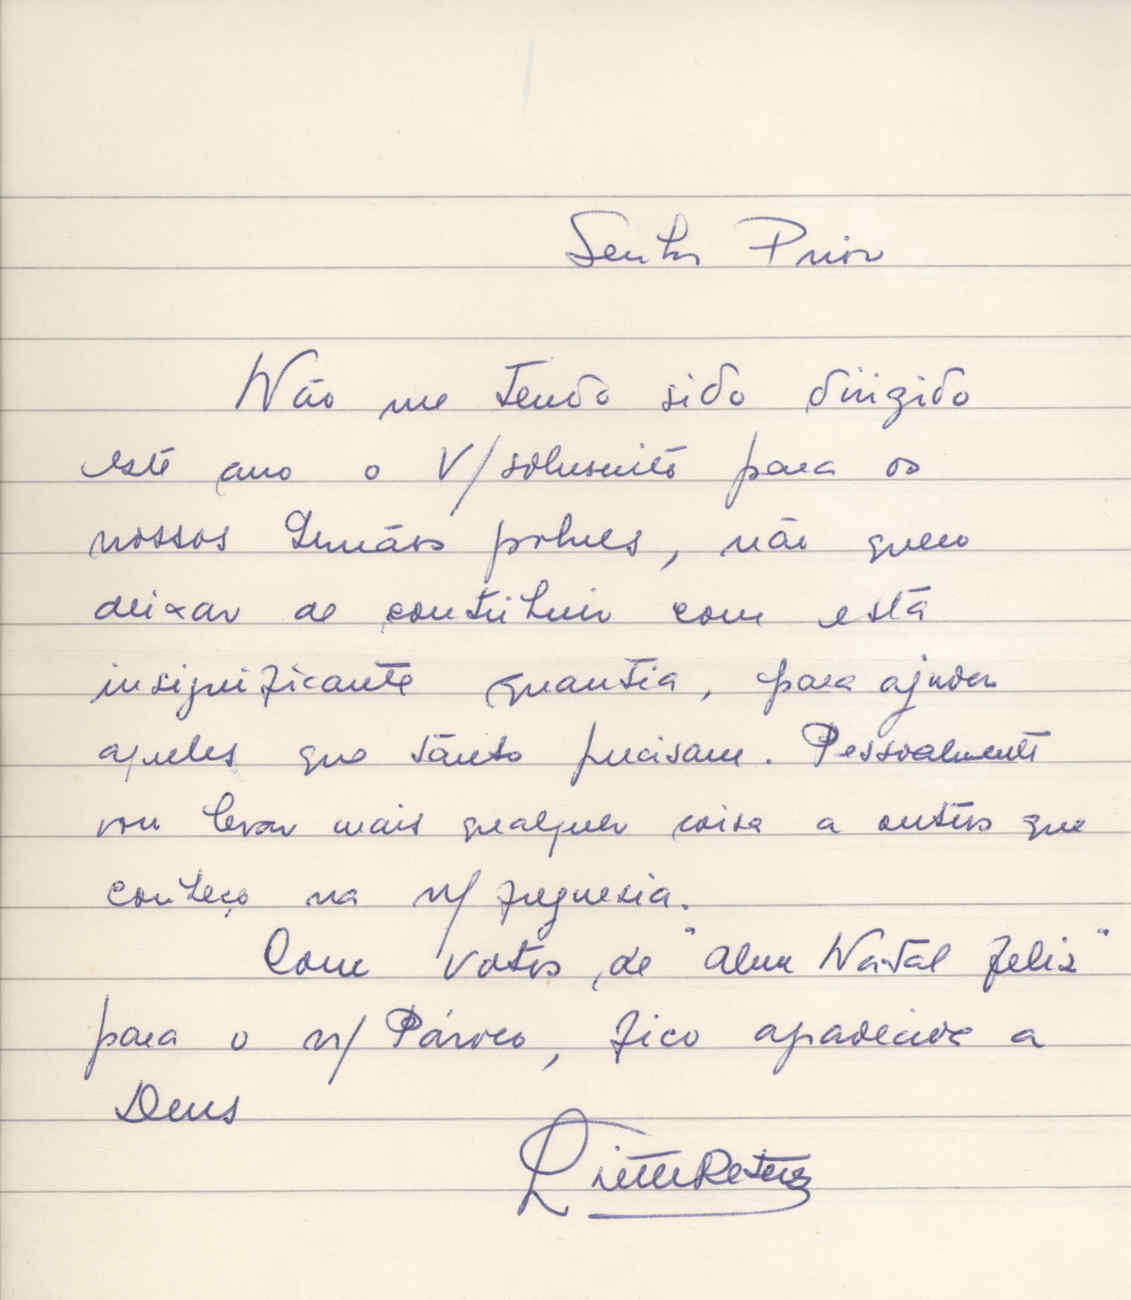 Senhor Prior
Não me tendo sido dirigido
este ano o V/ sobrescrito para os
nossos Irmãos pobres, não quero
deixar de contribuir com esta
insignificante quantia, para ajudar
aqueles que tanto precisam. Pessoalmente
vou levar mais qualquer coisa a outros que
conheço na n/ freguesia.
Com votos de "Natal Feliz"
para o n/ Pároco, fico agradecida a
Deus